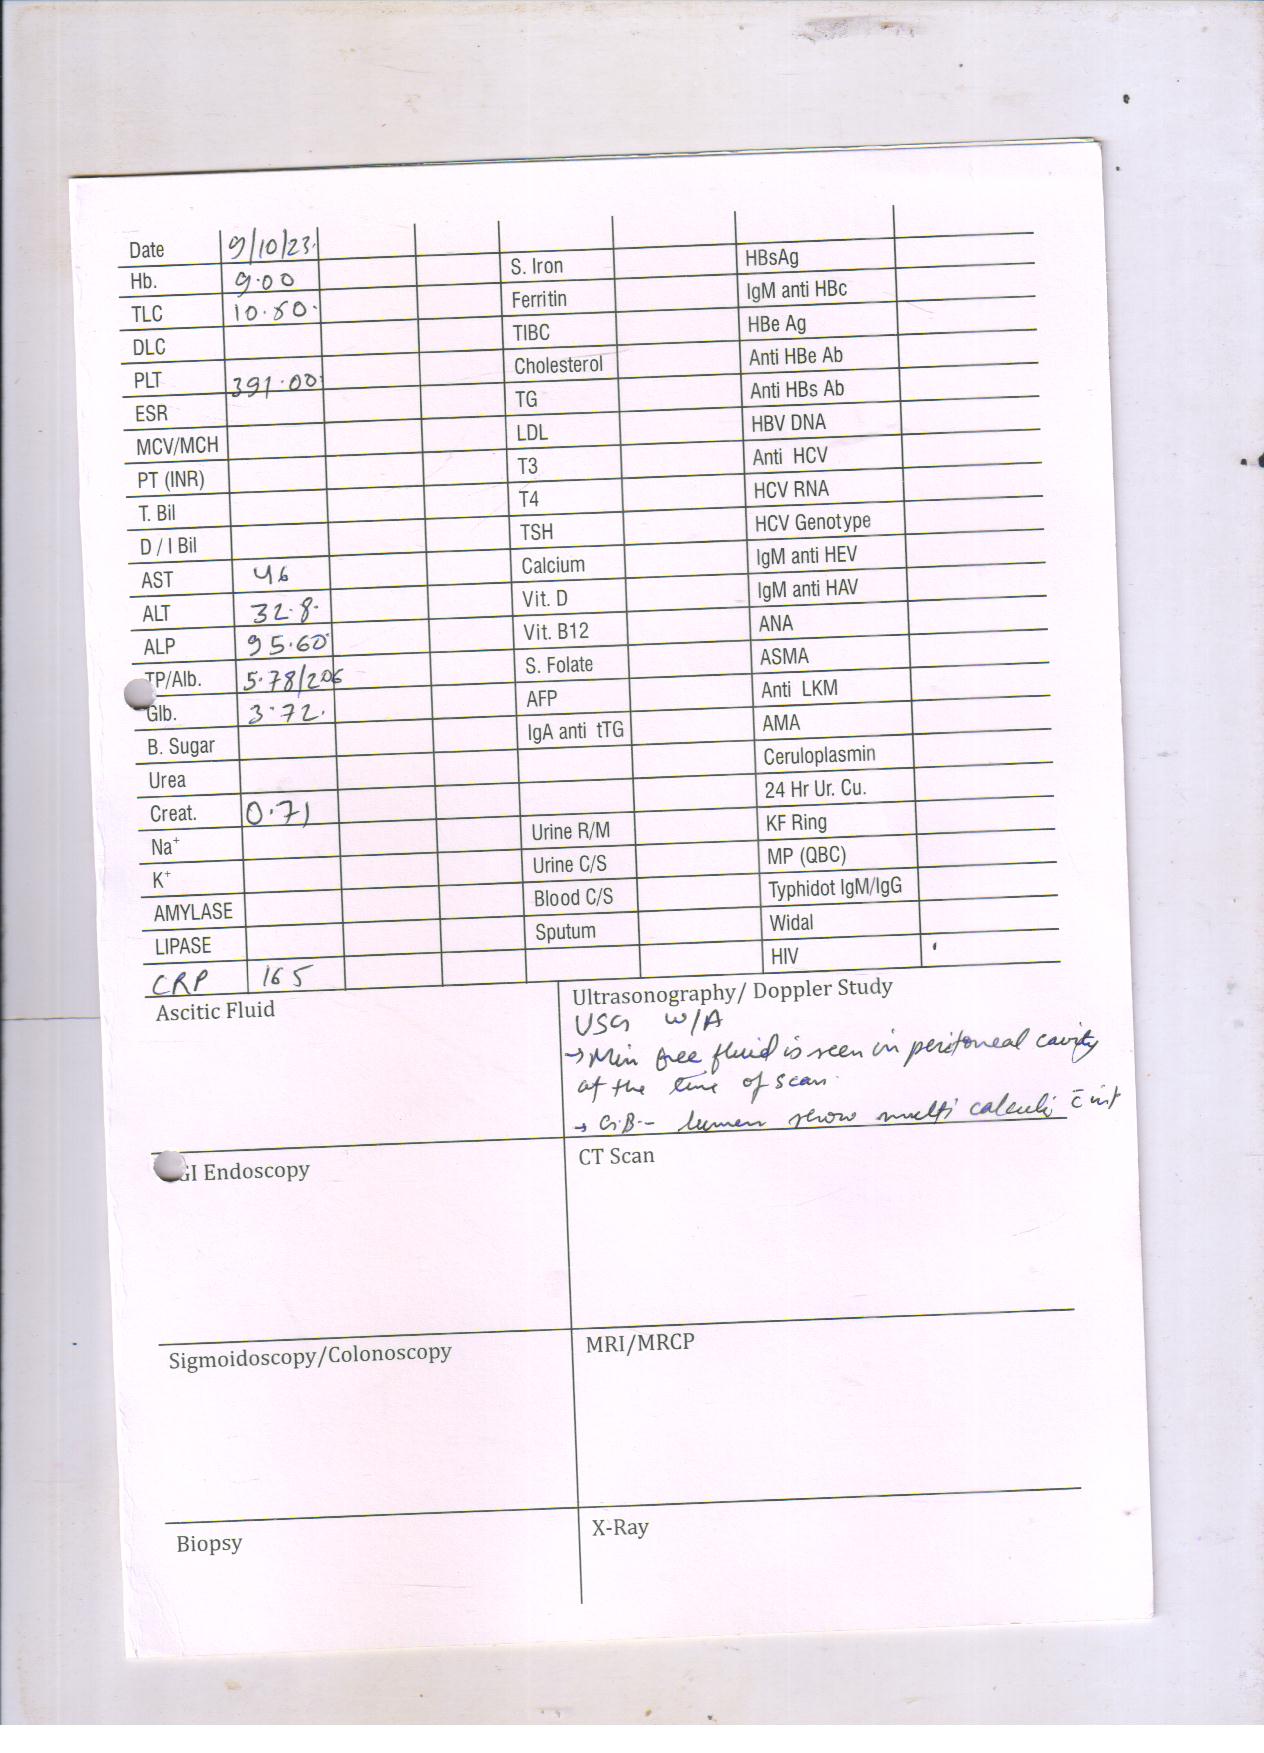 Date 9/10/23.
Hb. 9.00 S. Iron HBsAg
TLC 10.50. Ferritin IgM anti HBc
DLC TIBC HBe Ag
PLT 391.00 Cholesterol Anti HBe Ab
ESR TG Anti HBs Ab
MCV/MCH LDL HBV DNA
PT (INR) T3 Anti HCV
T. Bil T4 HCV RNA
D / I Bil TSH HCV Genotype
AST 46 Calcium IgM anti HEV
ALT 32.8. Vit. D IgM anti HAV
ALP 95.60 Vit. B12 ANA
TP/Alb. 5.78/206 S. Folate ASMA
Glb. 3.72. AFP Anti LKM
B. Sugar IgA anti tTG AMA
Urea Ceruloplasmin
Creat. 0.71 24 Hr Ur. Cu.
Na+ Urine R/M KF Ring
K+ Urine C/S MP (QBC)
AMYLASE Blood C/S Typhidot IgM/IgG
LIPASE Sputum Widal
CRP 165 HIV
Ascitic Fluid
Ultrasonography/ Doppler Study
USG W/A
→ Min free fluid is seen in peritoneal cavity
at the time of scan.
→ G.B - lumen show multi calculi c̄
GI Endoscopy
CT Scan
Sigmoidoscopy/Colonoscopy
MRI/MRCP
Biopsy
X-Ray